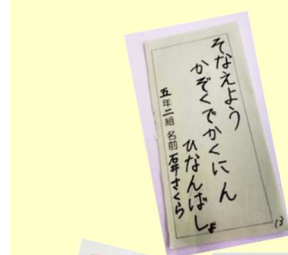 そなえよう
かぞくでかくにん
ひなんばしょ
五年二組 名前 石井さくら
13